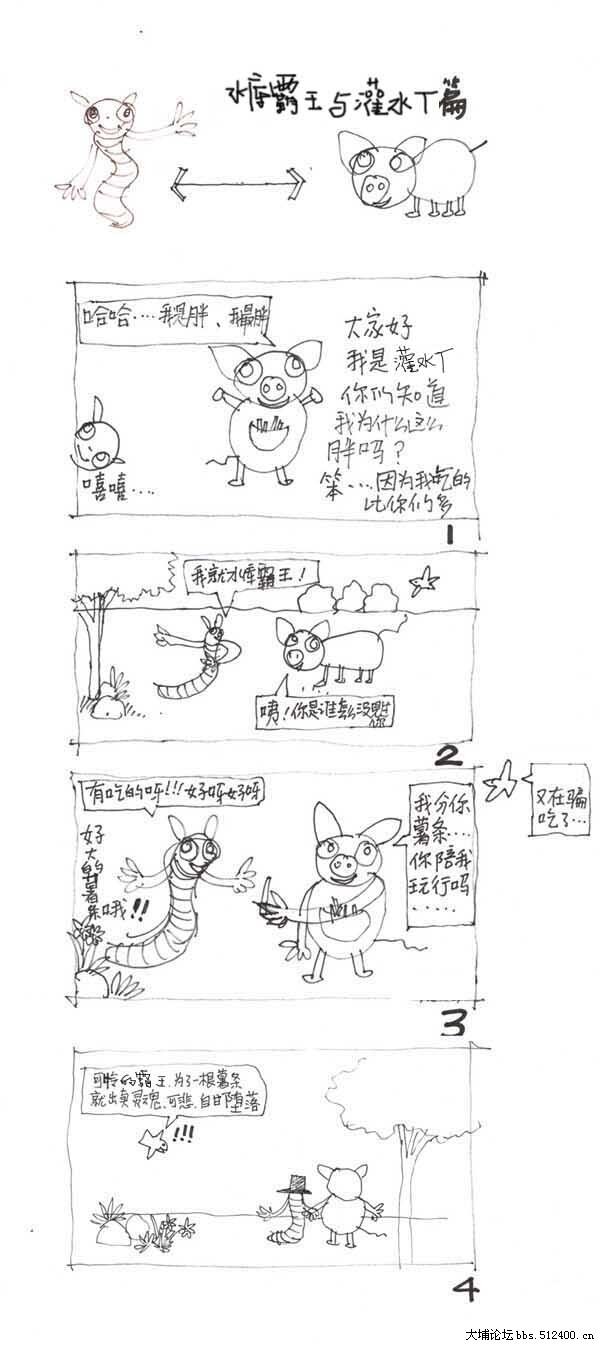 水库霸王与灌水丁篇
哈哈····我是胖、我最胖
大家好
我是灌水丁
你们知道
我为什么这么
胖吗?
笨····因为我吃的
比你们多
嘻嘻····
1
我就水库霸王!
咦!你是谁怎么没见过
你
2
有吃的呀!!!好呀好呀
好大的薯条哦!!
我分你
薯条····
你陪我
玩行吗
·····
又在骗
吃了···
3
可怜的霸王,为了一根薯条
就出卖灵魂,可悲,自甘堕落
!!!
4
大埔论坛bbs.512400.cn